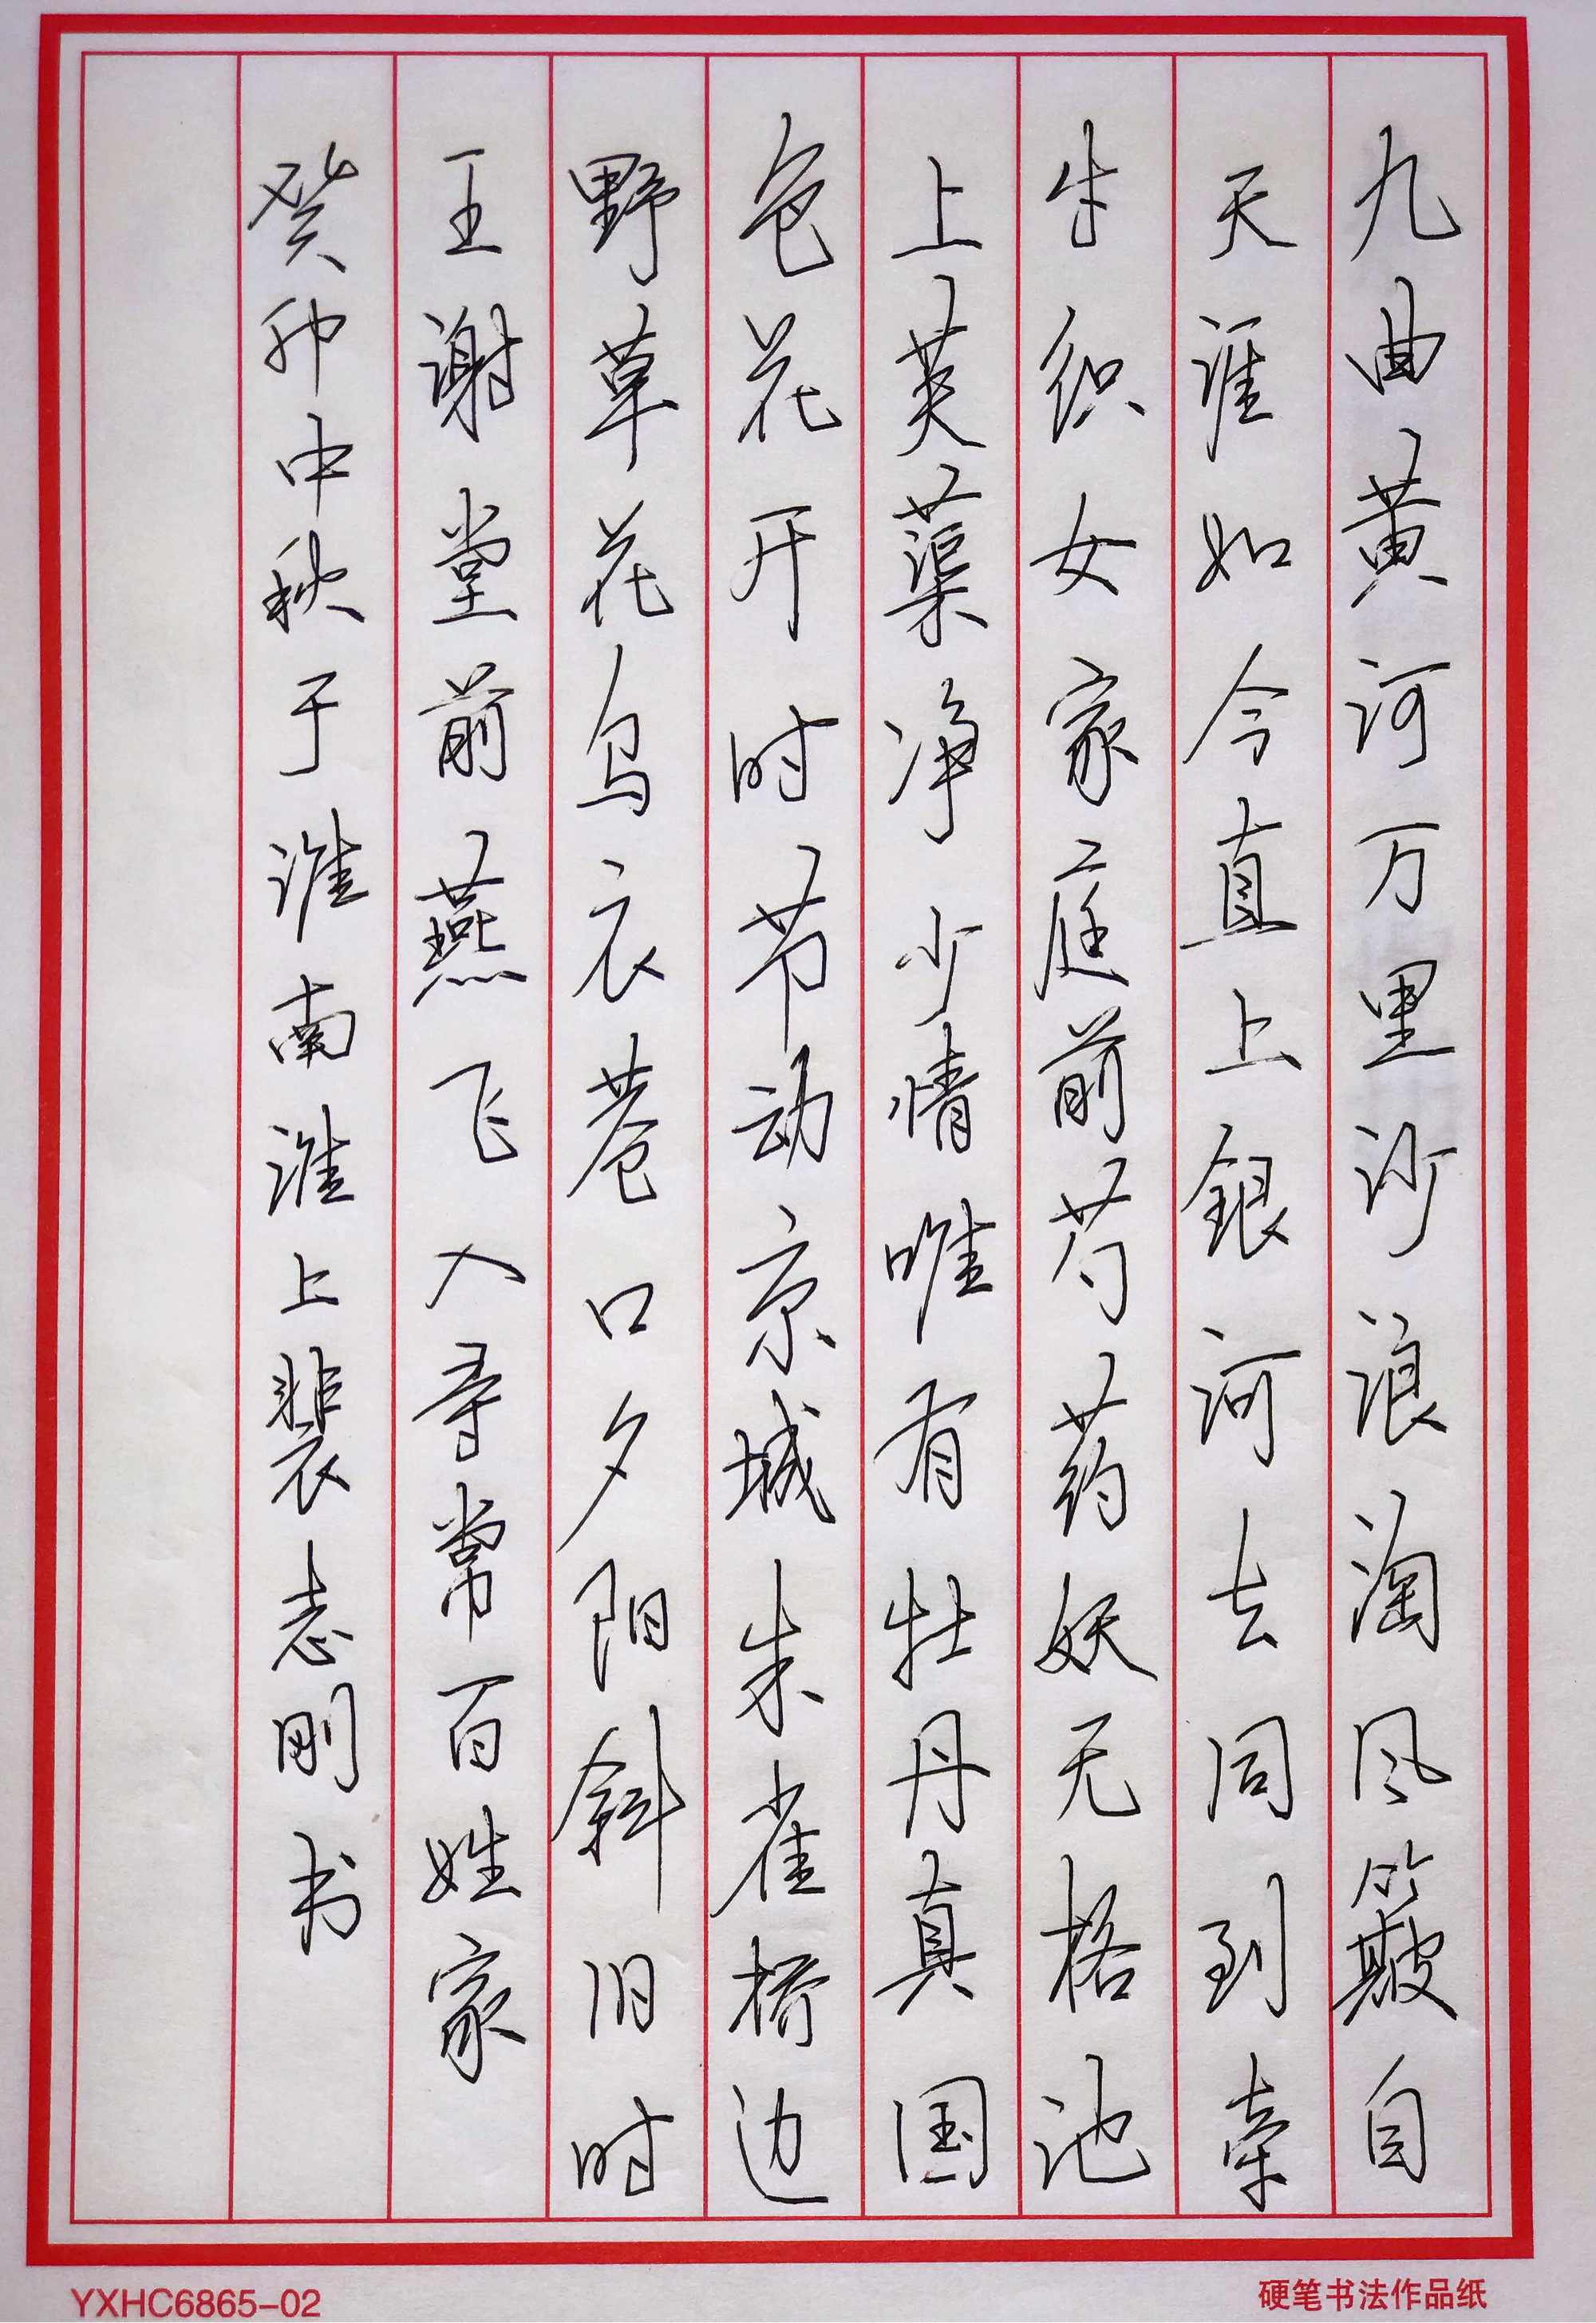 九曲黄河万里沙浪淘风簸自
天涯如今直上银河去同到牵
牛织女家庭前芍药妖无格池
上芙蕖净少情唯有牡丹真国
色花开时节动京城朱雀桥边
野草花乌衣巷口夕阳斜旧时
王谢堂前燕飞入寻常百姓家
癸卯中秋于淮南淮上裴志刚书
YXHC6865-02
硬笔书法作品纸